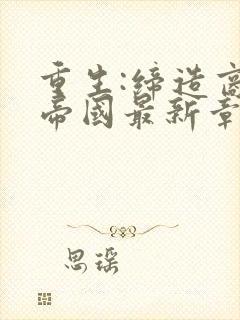 重生:缔造商
帝國最新章
思瑶